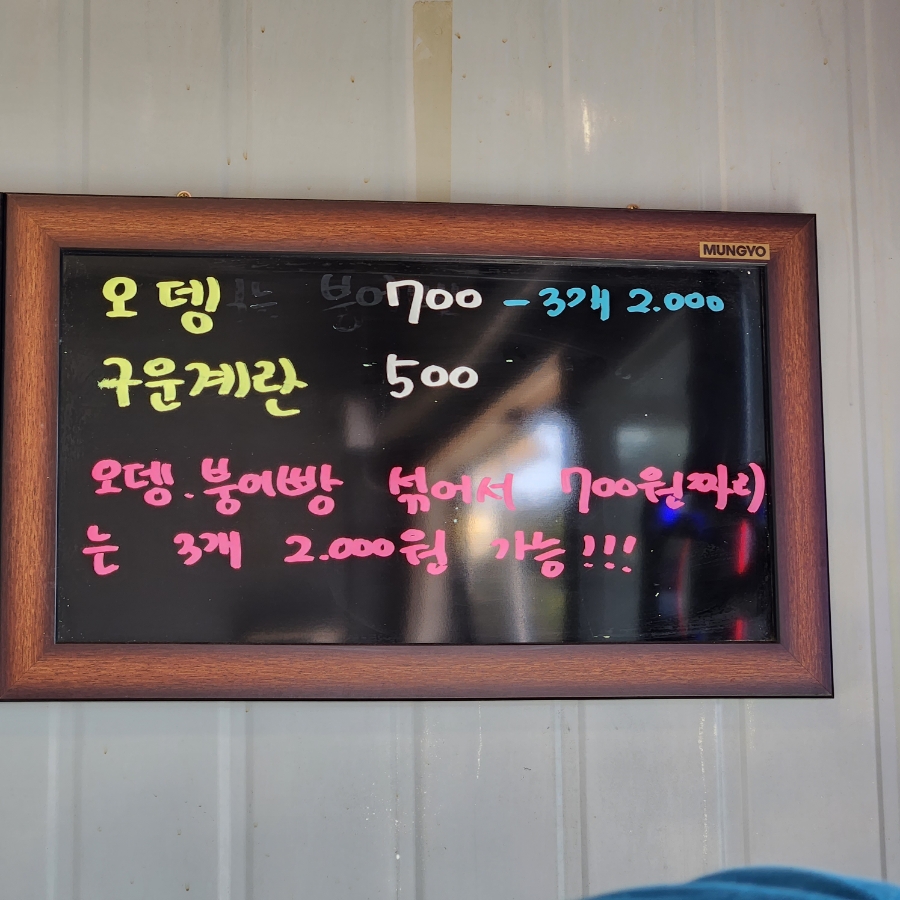 MUNGYO
오뎅 700 - 3개 2.000
구운계란 500
오뎅.붕어빵 섞어서 700원짜리
는 3개 2.000원 가능!!!